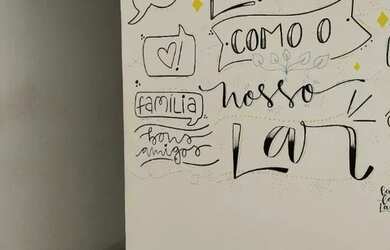 COMO O
!
FAMÍLIA
nosso
bons
amigos
LAR